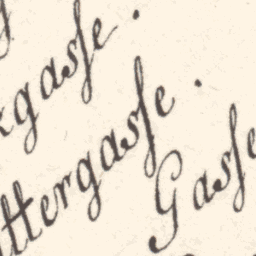 kgasse.
ttergasse.
Gasse